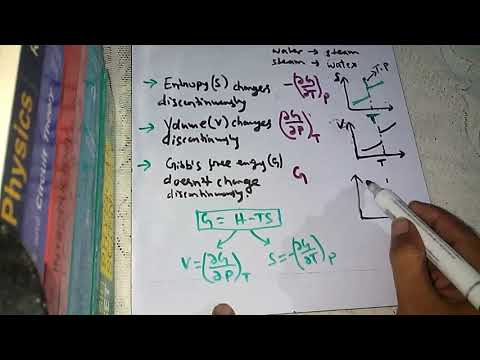 water → steam
steam → water
T.P
→ Entropy(S) changes -(∂G/∂T)P
discontinuously
S
T
→ Volume(V) changes (∂G/∂P)T
discontinuously
V
T
→ Gibb's free enrgy(G) G
doesn't change
discontinuously.
G = H-TS
V = (∂G/∂P)T S = -(∂G/∂T)P
Physics
and Circuit Theory